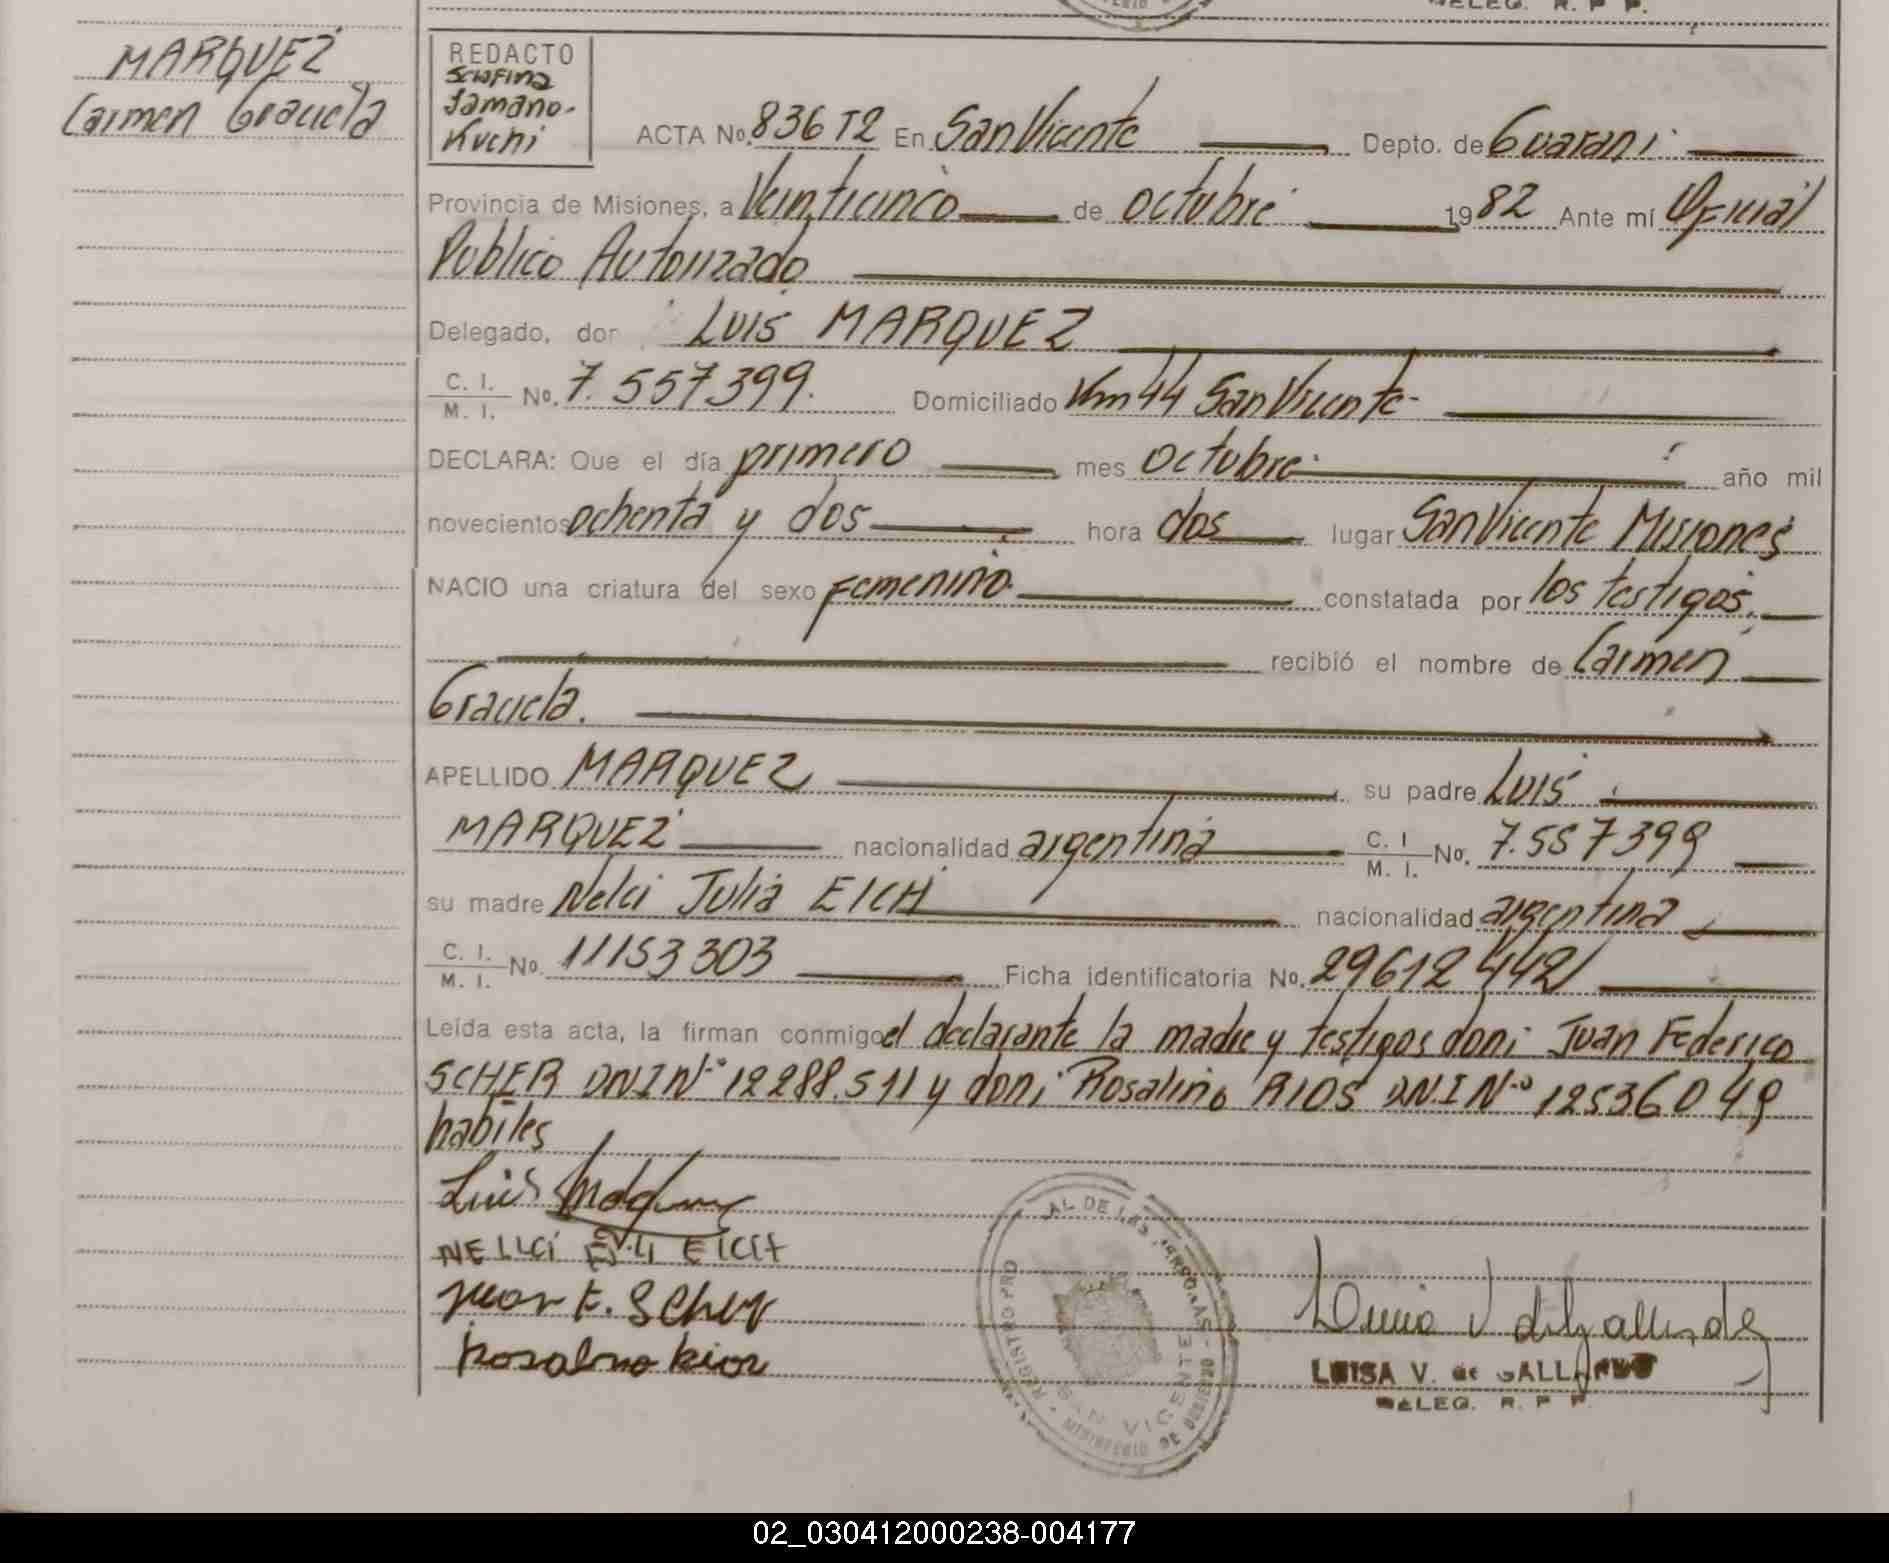 DELEG. R. P. P.
MARQUEZ
Carmen Graciela
REDACTO
Kuchi
ACTA No. 836 T2 En San Vicente Depto. de Guarani
Provincia de Misiones, a Veinticinco de octubre 1982 Ante mí Oficial
Publico Autorizado
Delegado, don LUIS MARQUEZ
C. I. / M. I. No. 7.557399. Domiciliado Km 44 San Vicente
DECLARA: Que el día primero mes octubre año mil
novecientos ochenta y dos hora dos lugar San Vicente Misiones
NACIO una criatura del sexo Femenino constatada por los testigos.
recibió el nombre de Carmen
Graciela.
APELLIDO MARQUEZ su padre LUIS
MARQUEZ nacionalidad argentina C. I / M. I. No. 7.557399
su madre Nelci Julia EICH nacionalidad argentina
C. I. / M. I. No. 11153303 Ficha identificatoria No. 29612442
Leída esta acta, la firman conmigo el declarante la madre y testigos don: Juan Federico
SCHER DNI Nº 12288.511 y don: Rosalino RIOS DN.I Nº 12536049
habiles
Luis
EICH
Scher
Rosalino Rios
REGISTRO PRO AL DE LAS PERSONAS - MINISTERIO DE GOBIERNO
SAN VICENTE
LUISA V. de GALLARDO
DELEG. R. P. P.
02_030412000238-004177